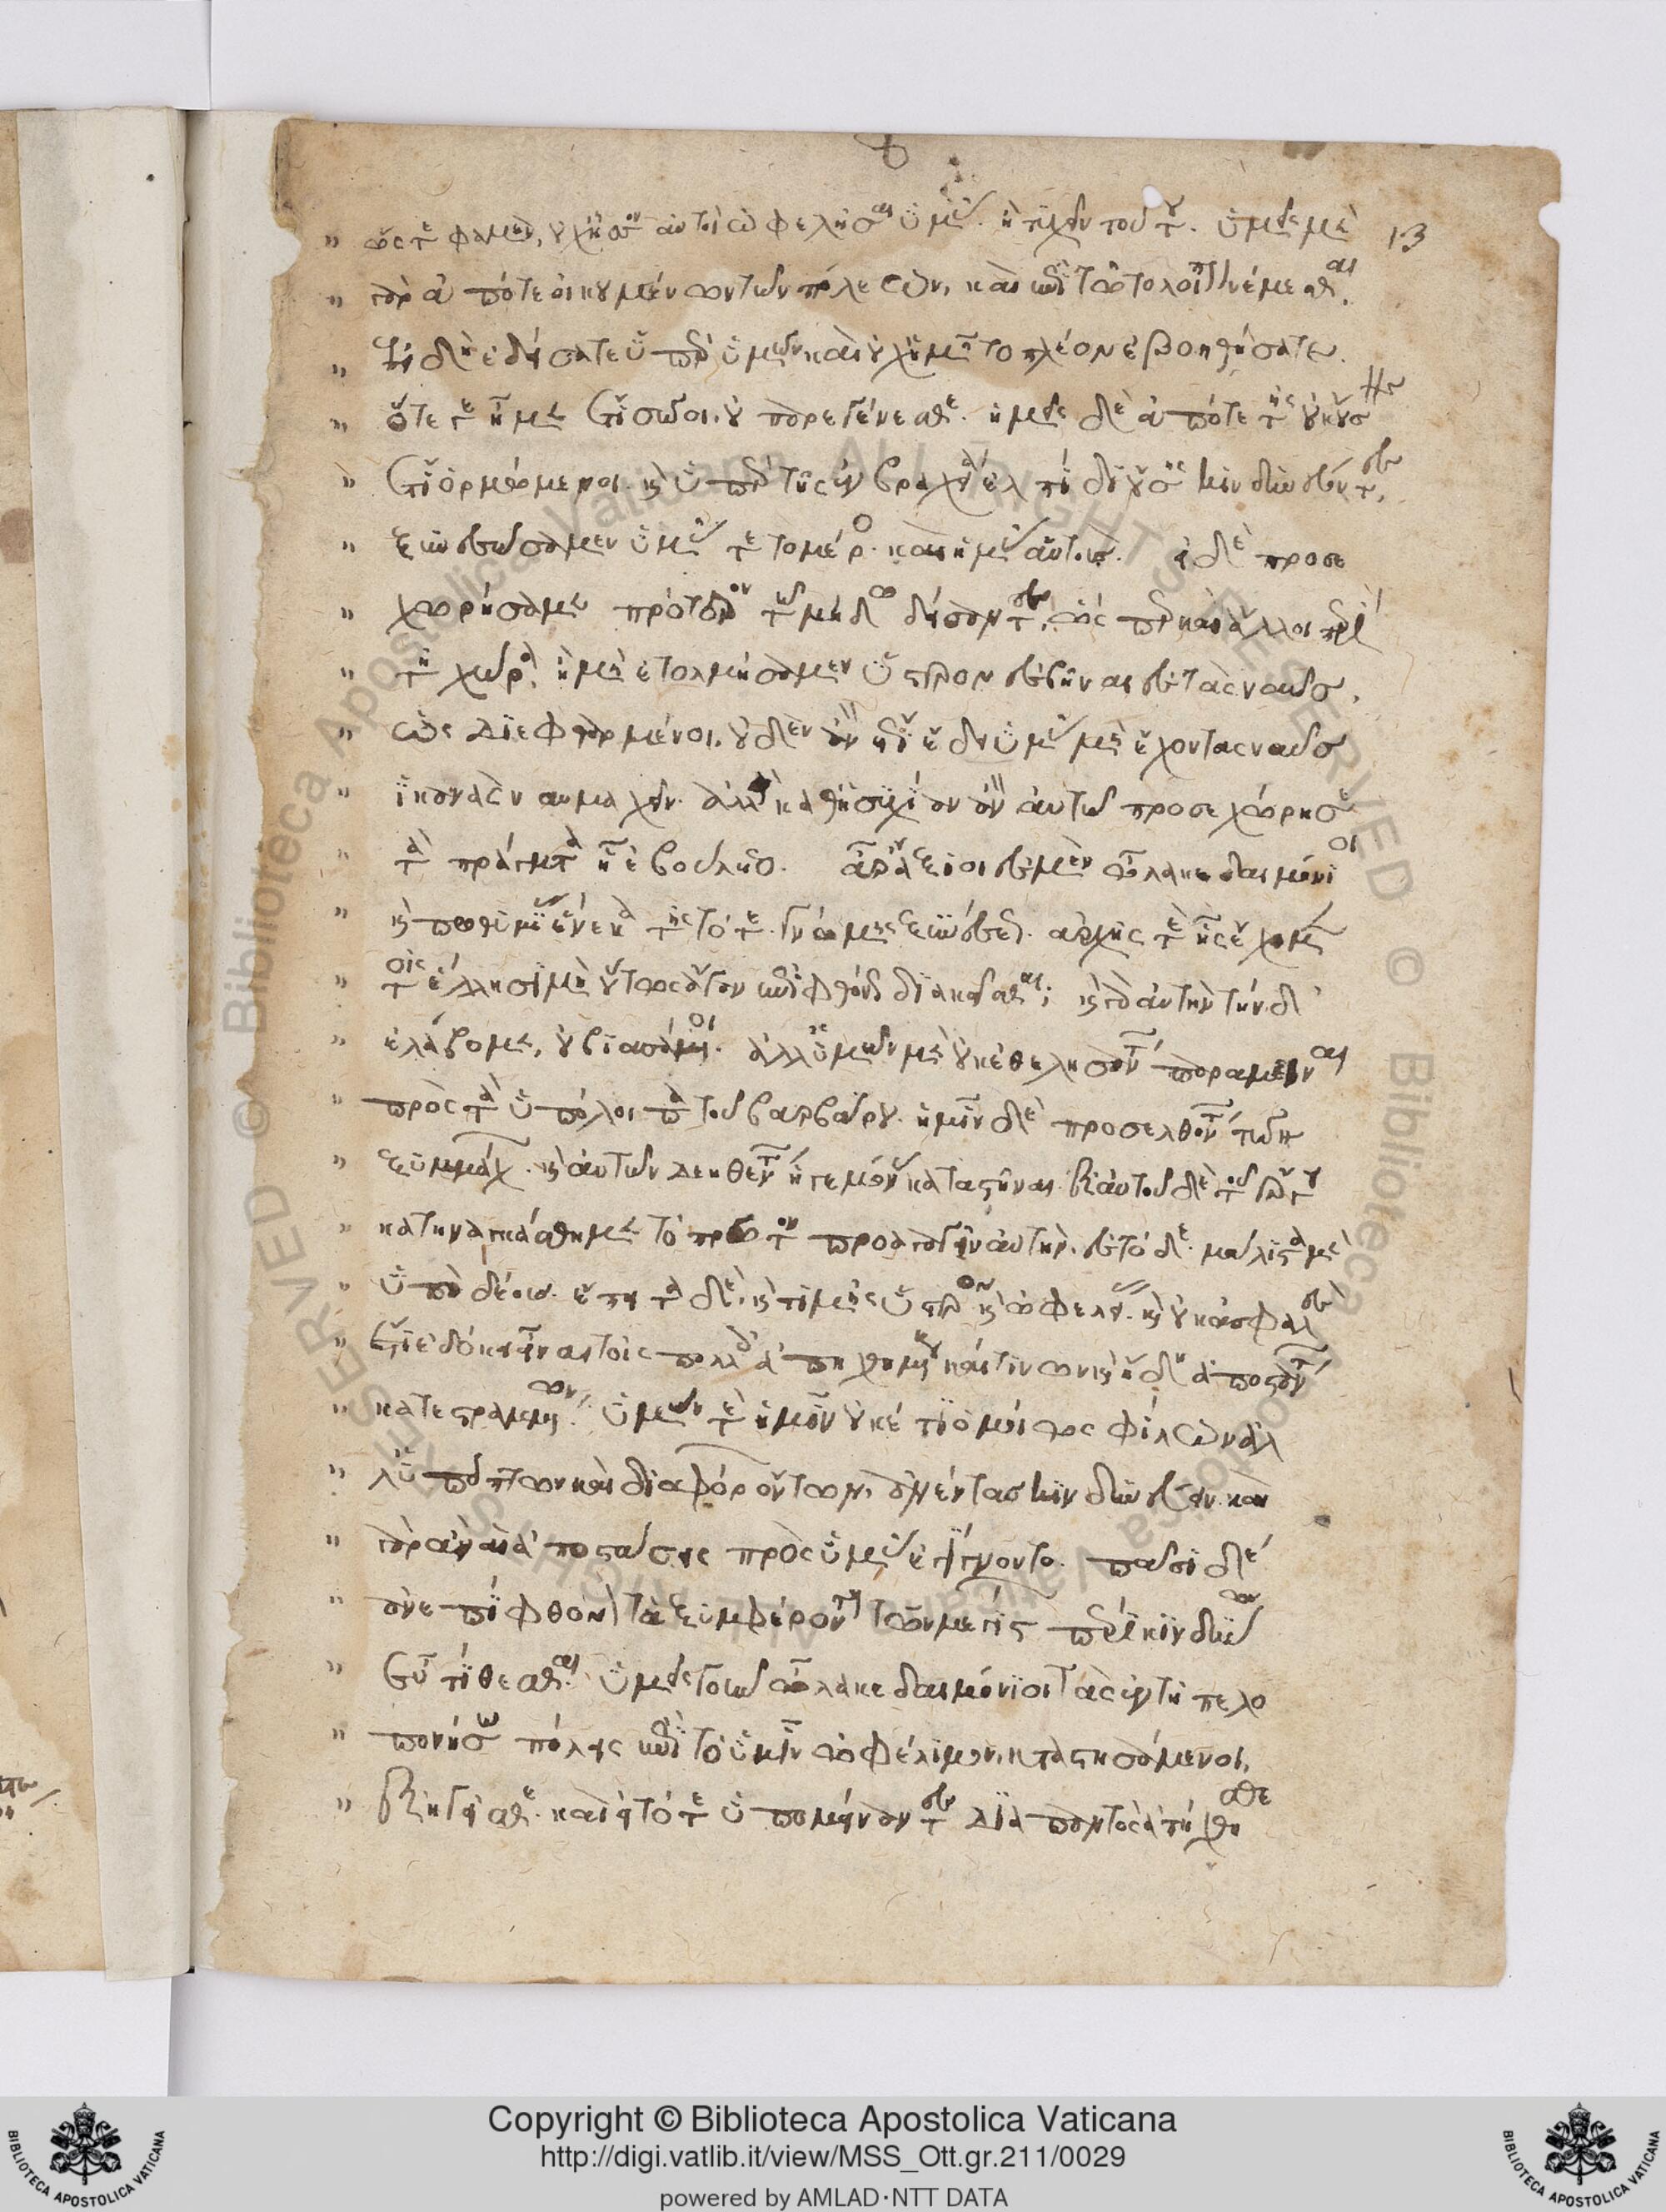 13
ὥστε φαμὲν οὐχ ἧσσον αὐτοὶ ὠφελῆσαι ὑμᾶς ἢ τυχεῖν τούτου. ὑμεῖς μὲν
γὰρ ἀπό τε οἰκουμένων τῶν πόλεων, καὶ ἐπὶ τῷ τὸ λοιπὸν νέμεσθαι,
ἐπειδὴ ἐδείσατε ὑπὲρ ὑμῶν καὶ οὐχ ἡμῶν τὸ πλέον ἐβοηθήσατε.
ὅτε γε ἦμεν ἔτι σῶοι, οὐ παρεγένεσθε. ἡμεῖς δὲ ἀπό τε τῆς οὐκ οὔσης
ἔτι ὁρμώμενοι καὶ ὑπὲρ τῆς ἐν βραχείᾳ ἐλπίδι οὔσης κινδυνεύοντες,
ξυνεσώσαμεν ὑμᾶς τε τὸ μέρος καὶ ἡμᾶς αὐτούς. εἰ δὲ προσε
χωρήσαμεν πρότερον τῷ μήδῳ δείσαντες, ὥσπερ καὶ ἄλλοι περὶ
τῇ χώρᾳ, ἢ μὴ ἐτολμήσαμεν ὕστερον ἐσβῆναι ἐς τὰς ναῦς,
ὡς διεφθαρμένοι, οὐδὲν ἂν ἔτι ἔδει ὑμᾶς μὴ ἔχοντας ναῦς
ἱκανὰς ναυμαχεῖν. ἀλλὰ καθ' ἡσυχίαν ἂν αὐτῷ προσεχώρησε
τὰ πράγματα ᾗ ἐβούλετο. ἆρ' ἄξιοί ἐσμεν ὦ λακεδαιμόνιοι
καὶ προθυμίας ἕνεκα τῆς τότε γνώμης ξυνέσεως ἀρχῆς τε ἧς ἔχομεν
τοῖς ἕλλησι μὴ οὕτως ἄγαν ἐπιφθόνως διακεῖσθαι; καὶ γὰρ αὐτὴν τήνδε
ἐλάβομεν, οὐ βιασάμενοι. ἀλλ' ὑμῶν μὲν οὐκ ἐθελησάντων παραμεῖναι
πρὸς τὰ ὑπόλοιπα τοῦ βαρβάρου. ἡμῖν δὲ προσελθόντων τῶν
ξυμμάχων. καὶ αὐτῶν δεηθέντων ἡγεμόνας καταστῆναι. ἐξ αὐτοῦ δὲ τοῦ ἔργου
κατηναγκάσθημεν τὸ πρῶτον προαγαγεῖν αὐτὴν ἐς τόδε. μάλιστα μὲν
ὑπὸ δέους. ἔπειτα δὲ καὶ τιμῆς ὕστερον καὶ ὠφελείας. καὶ οὐκ ἀσφαλὲς
ἔτι ἐδόκει εἶναι τοῖς πολλοῖς ἀπηχθημένους καί τινων καὶ ἤδη ἀποστάντων
κατεστραμμένων. ὑμῶν τε ἡμῖν οὐκέτι ὁμοίως φίλων ἀλ
λ' ὑπόπτων καὶ διαφόρων ὄντων, ἀνέντας κινδυνεύειν. καὶ
γὰρ ἂν αἱ ἀποστάσεις πρὸς ὑμᾶς ἐγίγνοντο. πᾶσι δὲ
ἀνεπίφθονον τὰ ξυμφέροντα τῶν μεγίστων πέρι κινδύνων
εὖ τίθεσθαι. ὑμεῖς γοῦν ὦ λακεδαιμόνιοι τὰς ἐν τῇ πελο
ποννήσῳ πόλεις ἐπὶ τὸ ὑμῖν ὠφέλιμον, καταστησάμενοι,
ἐξηγεῖσθε. καὶ εἰ τότε ὑπομείναντες διὰ παντὸς ἀπήχθησθε
Copyright © Biblioteca Apostolica Vaticana
http://digi.vatlib.it/view/MSS_Ott.gr.211/0029
powered by AMLAD·NTT DATA